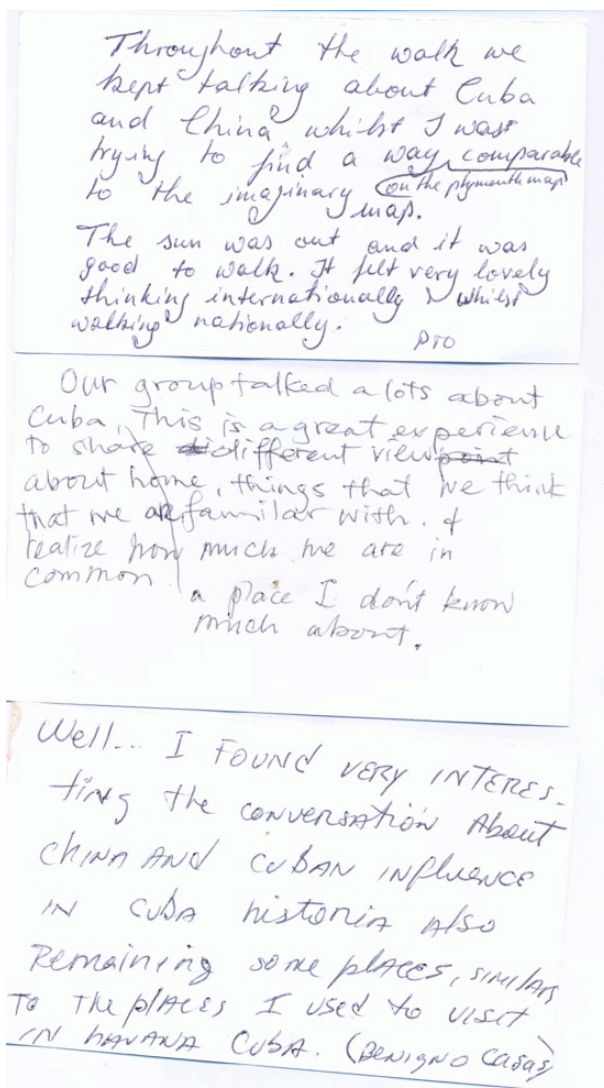 Throughout the walk we
kept talking about Cuba
and China whilst I was
trying to find a way comparable
to the imaginary (on the plymouth map)
map.
The sun was out and it was
good to walk. It felt very lovely
thinking internationally whilst
walking nationally.
PTO
Our group talked a lots about
Cuba, This is a great experience
to share different viewpoint
about home, things that we think
that we are familar with. &
realize how much we are in
common
a place I don't know
much about.
Well... I FOUNd VERY INTERES-
tiNg the CONVERSATION About
ChINA ANd CUBAN INFluENCE
IN CubA histORIA Also
REMAiNiNg some plACES, SIMILARS
TO The plACES I USEd to VISIT
IN hAVANA CubA. (BENIGNO CASAS)